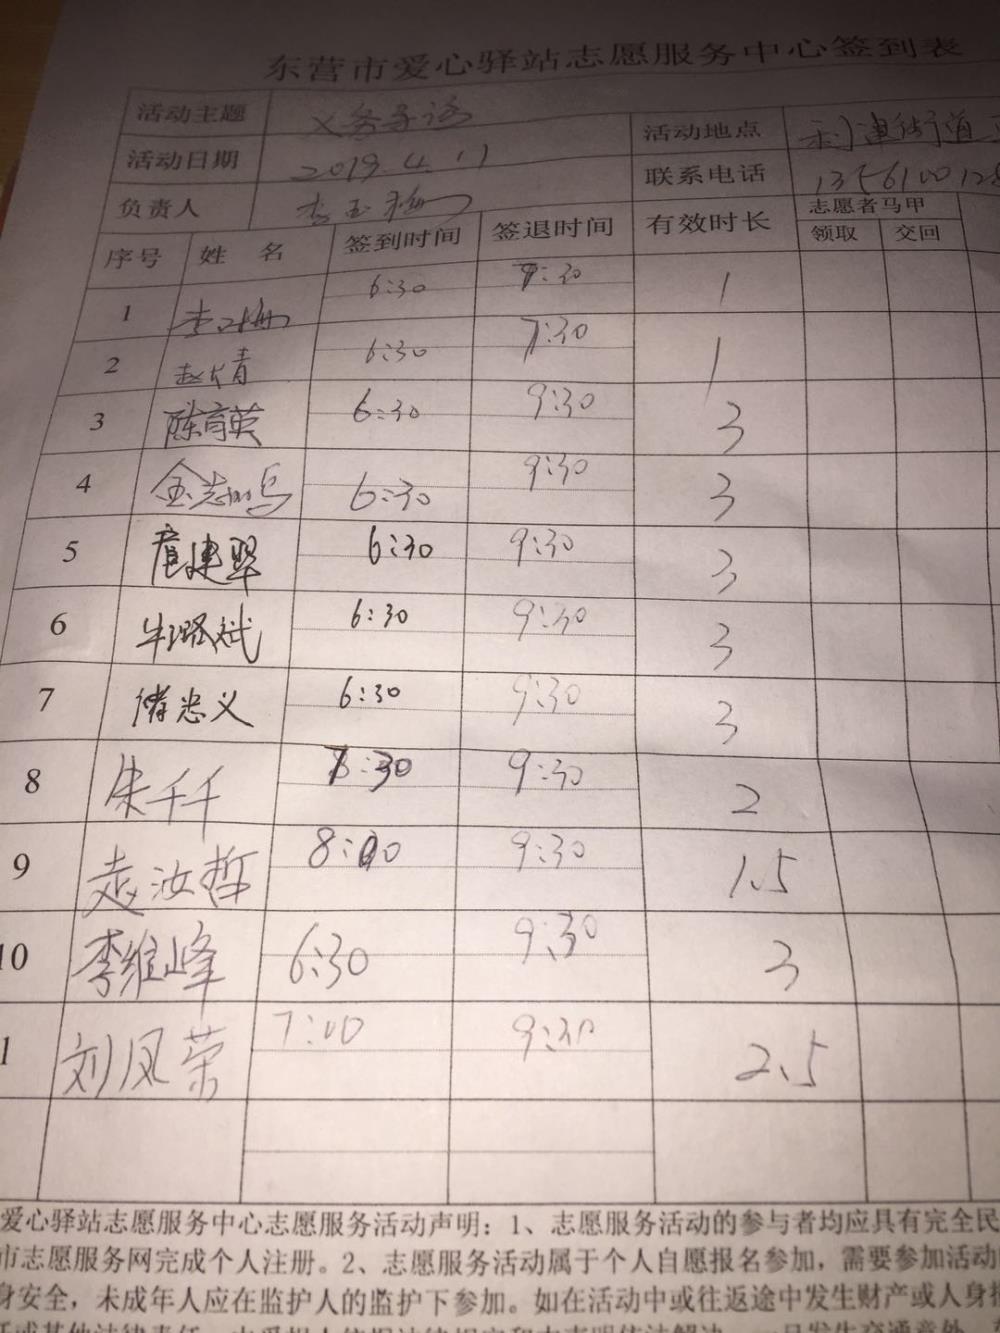 东营市爱心驿站志愿服务中心签到表
活动主题 义务导 活动地点 利津街道
活动日期 2019.4.11 联系电话
负责人 李玉梅 有效时长 志愿者马甲
序号 姓名 签到时间 签退时间 领取 交回
1 6:30 7:30 1
2 赵 青 6:30 7:30 1
3 陈育英 6:30 9:30 3
4 6:30 9:30 3
5 建翠 6:30 9:30 3
6 牛璐斌 6:30 9:30 3
7 忠义 6:30 9:30 3
8 朱千千 7:30 9:30 2
9 赵汝哲 8:00 9:30 1.5
10 李维峰 6:30 9:30 3
1 刘凤荣 7:00 9:30 2.5
爱心驿站志愿服务中心志愿服务活动声明：1、志愿服务活动的参与者均应具有完全民
市志愿服务网完成个人注册。2、志愿服务活动属于个人自愿报名参加，需要参加活动
身安全，未成年人应在监护人的监护下参加。如在活动中或往返途中发生财产或人身